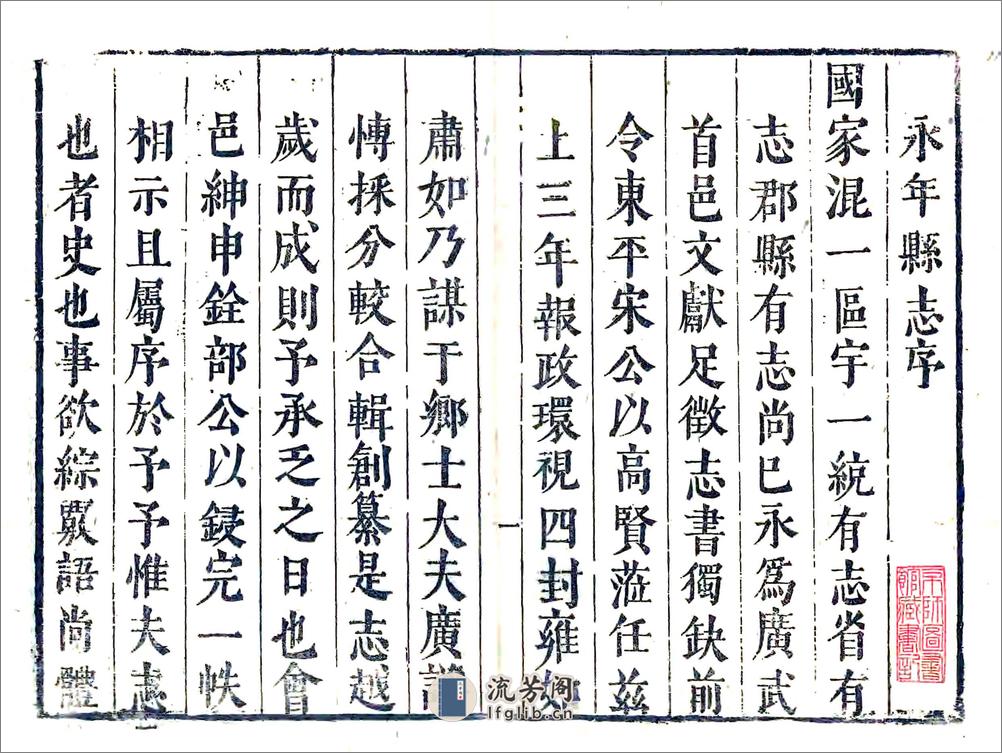 永年縣志序
國家混一區宇一統有志省有
志郡縣有志尚已永爲廣武
首邑文獻足徵志書獨缺前
令東平宋公以高賢蒞任茲
上三年報政環視四封雍如
一
肅如乃謀于鄉士大夫廣諮
愽採分較合輯創纂是志越
歲而成則予承乏之日也會
邑紳申銓部公以鋟完一帙
相示且屬序於予予惟夫志
也者史也事欲綜覈語尚體
京師圖書
館藏書記
流芳阁
lfglib.cn